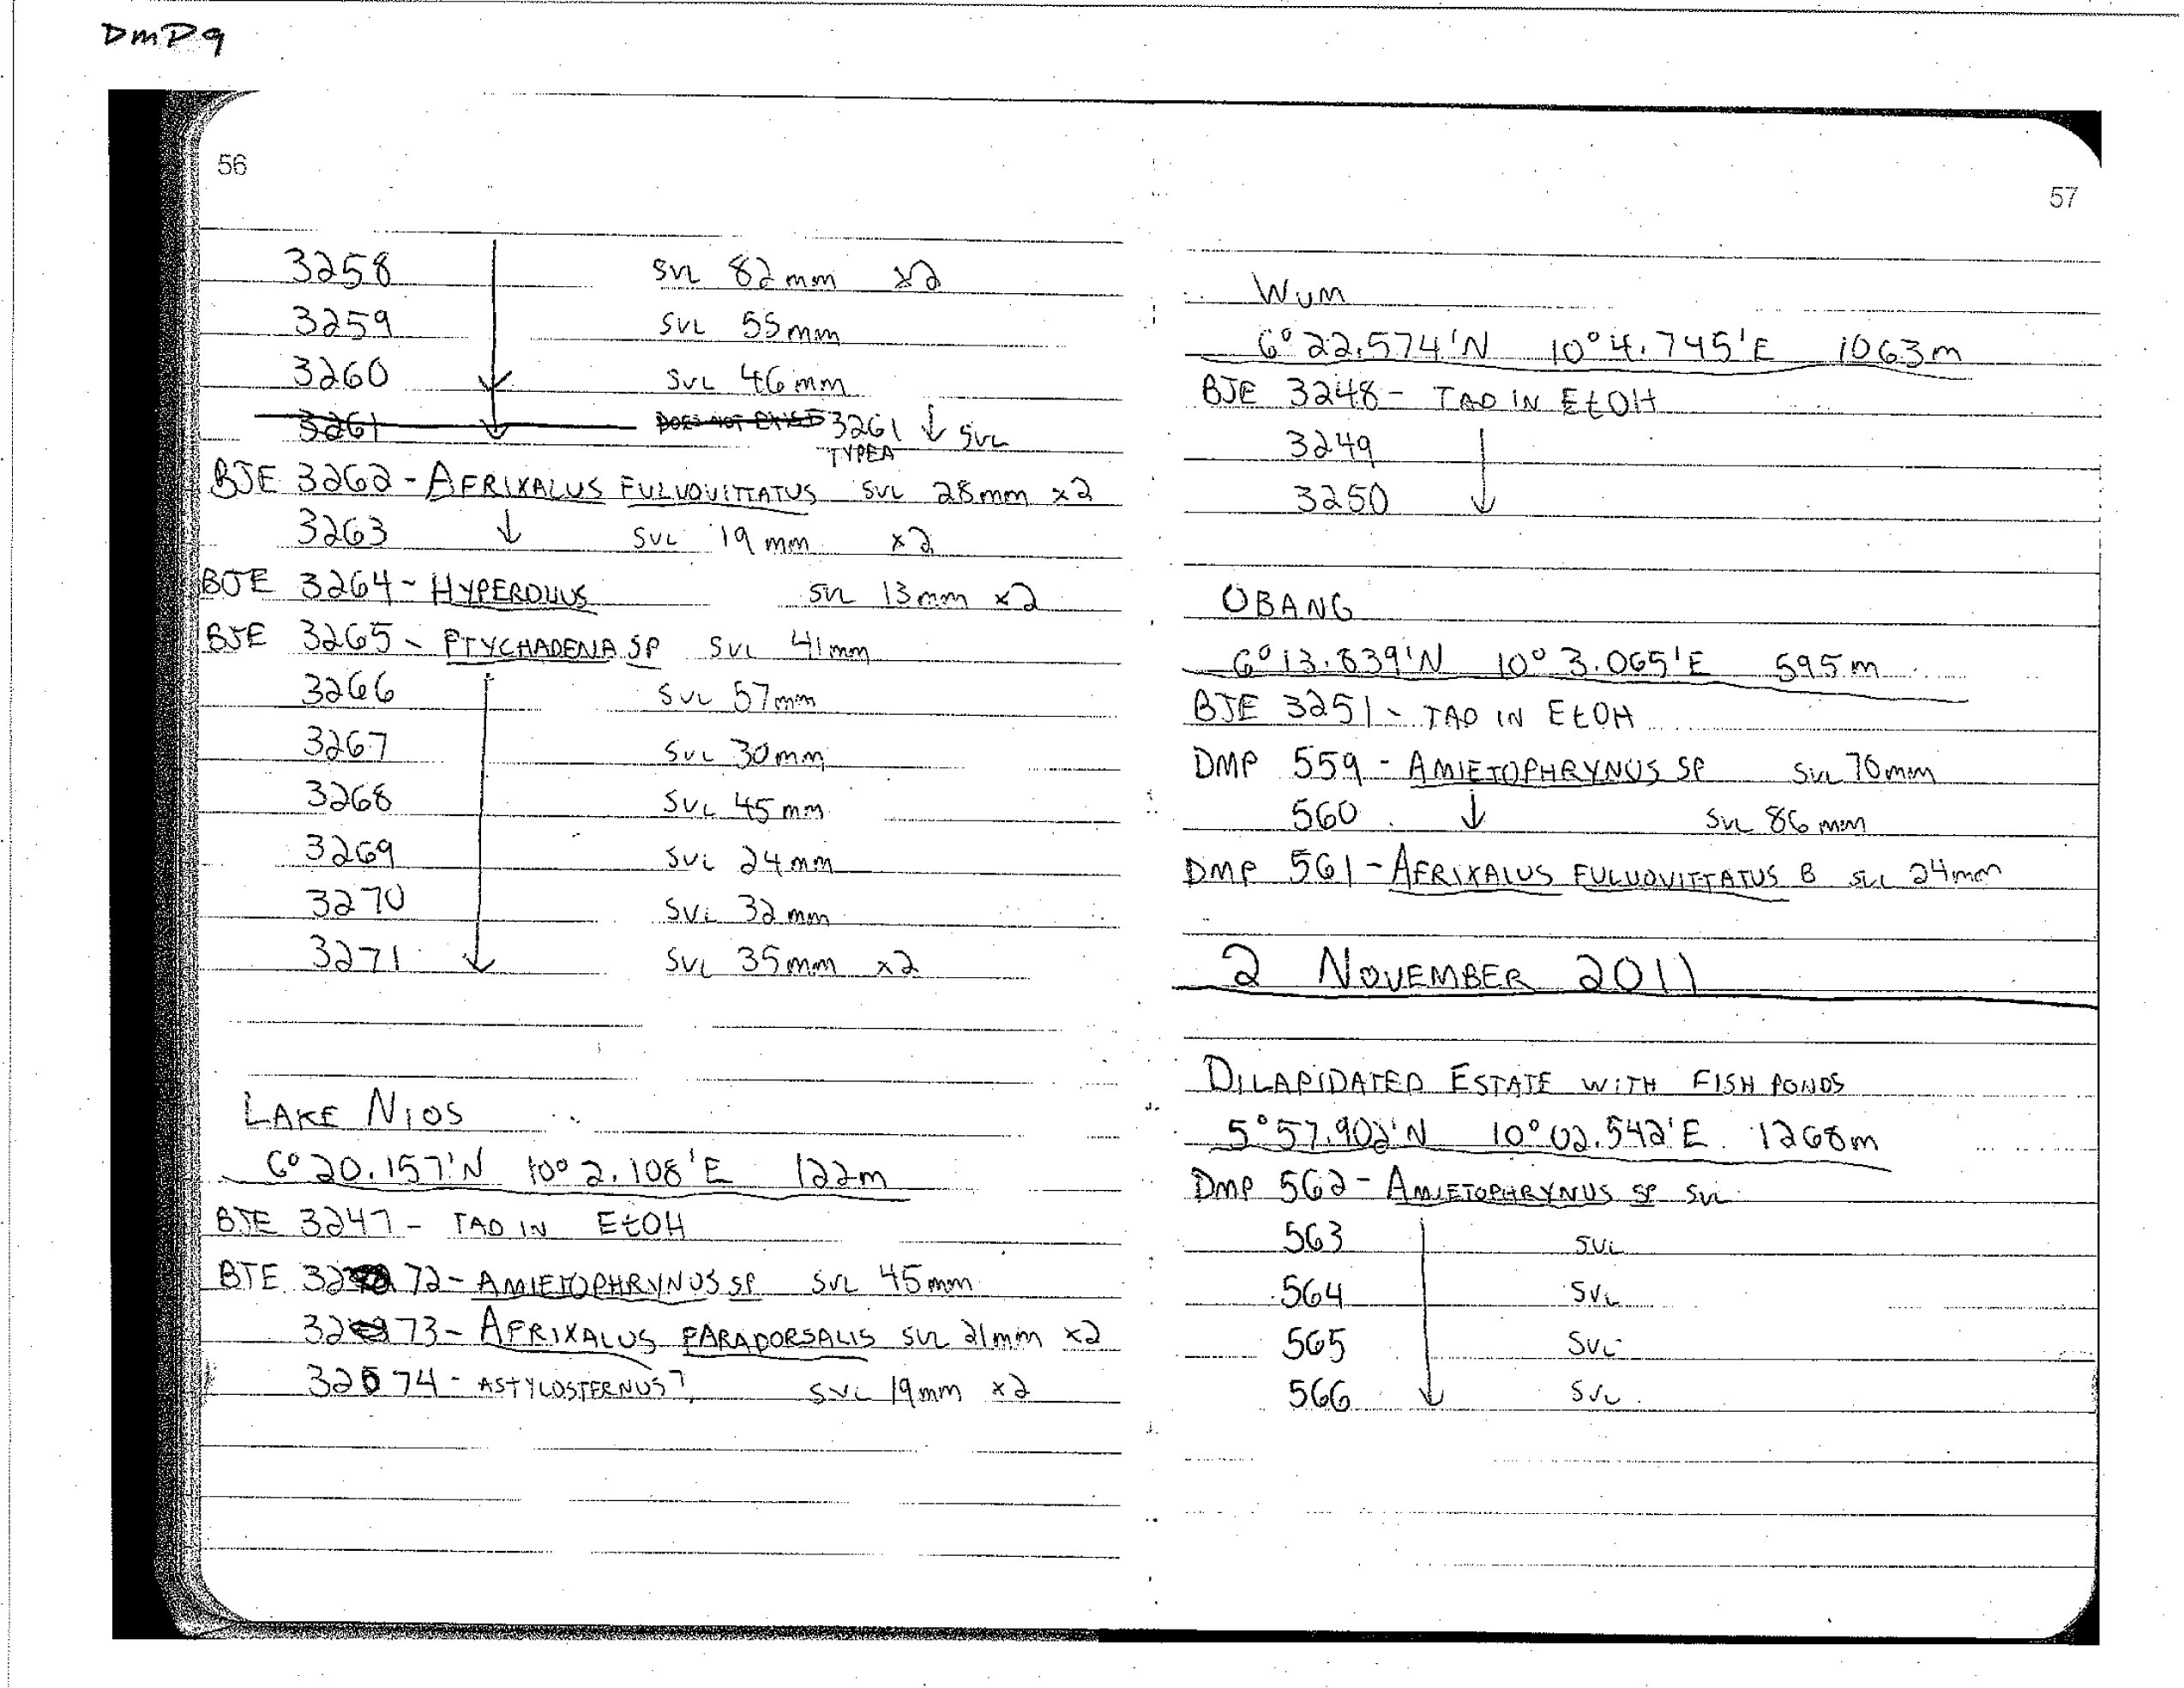 DMP9
56
3258 ↓ SVL 82mm x2
3259 SVL 55mm
3260 SVL 46mm
3261 ↓ DOES NOT EXIST 3261 ↓ SVL
TYPEA
BJE 3262 - AFRIXALUS FULVOVITTATUS SVL 28mm x2
3263 ↓ SVL 19mm x2
BJE 3264 - HYPEROLIUS SVL 13mm x2
BJE 3265 - PTYCHADENA SP SVL 41mm
3266 SVL 57mm
3267 SVL 30mm
3268 SVL 45mm
3269 SVL 24mm
3270 SVL 32mm
3271 ↓ SVL 35mm x2
LAKE NIOS
6° 20.157'N 10° 2.108'E 122m
BJE 3247 - TAD IN EtOH
BJE 3272 - AMIETOPHRYNUS SP SVL 45mm
3273 - AFRIXALUS PARADORSALIS SVL 21mm x2
3274 - ASTYLOSTERNUS? SVL 19mm x2
57
WUM
6° 22.574'N 10° 4.745'E 1063m
BJE 3248 - TAD IN EtOH
3249
3250 ↓
OBANG
6° 13.839'N 10° 3.065'E 595m
BJE 3251 - TAD IN EtOH
DMP 559 - AMIETOPHRYNUS SP SVL 70mm
560 ↓ SVL 86mm
DMP 561 - AFRIXALUS FULVOVITTATUS B SVL 24mm
2 NOVEMBER 2011
DILAPIDATED ESTATE WITH FISH PONDS
5° 57.902'N 10° 02.542'E 1268m
DMP 562 - AMIETOPHRYNUS SP SVL
563 SVL
564 SVL
565 SVL
566 ↓ SVL